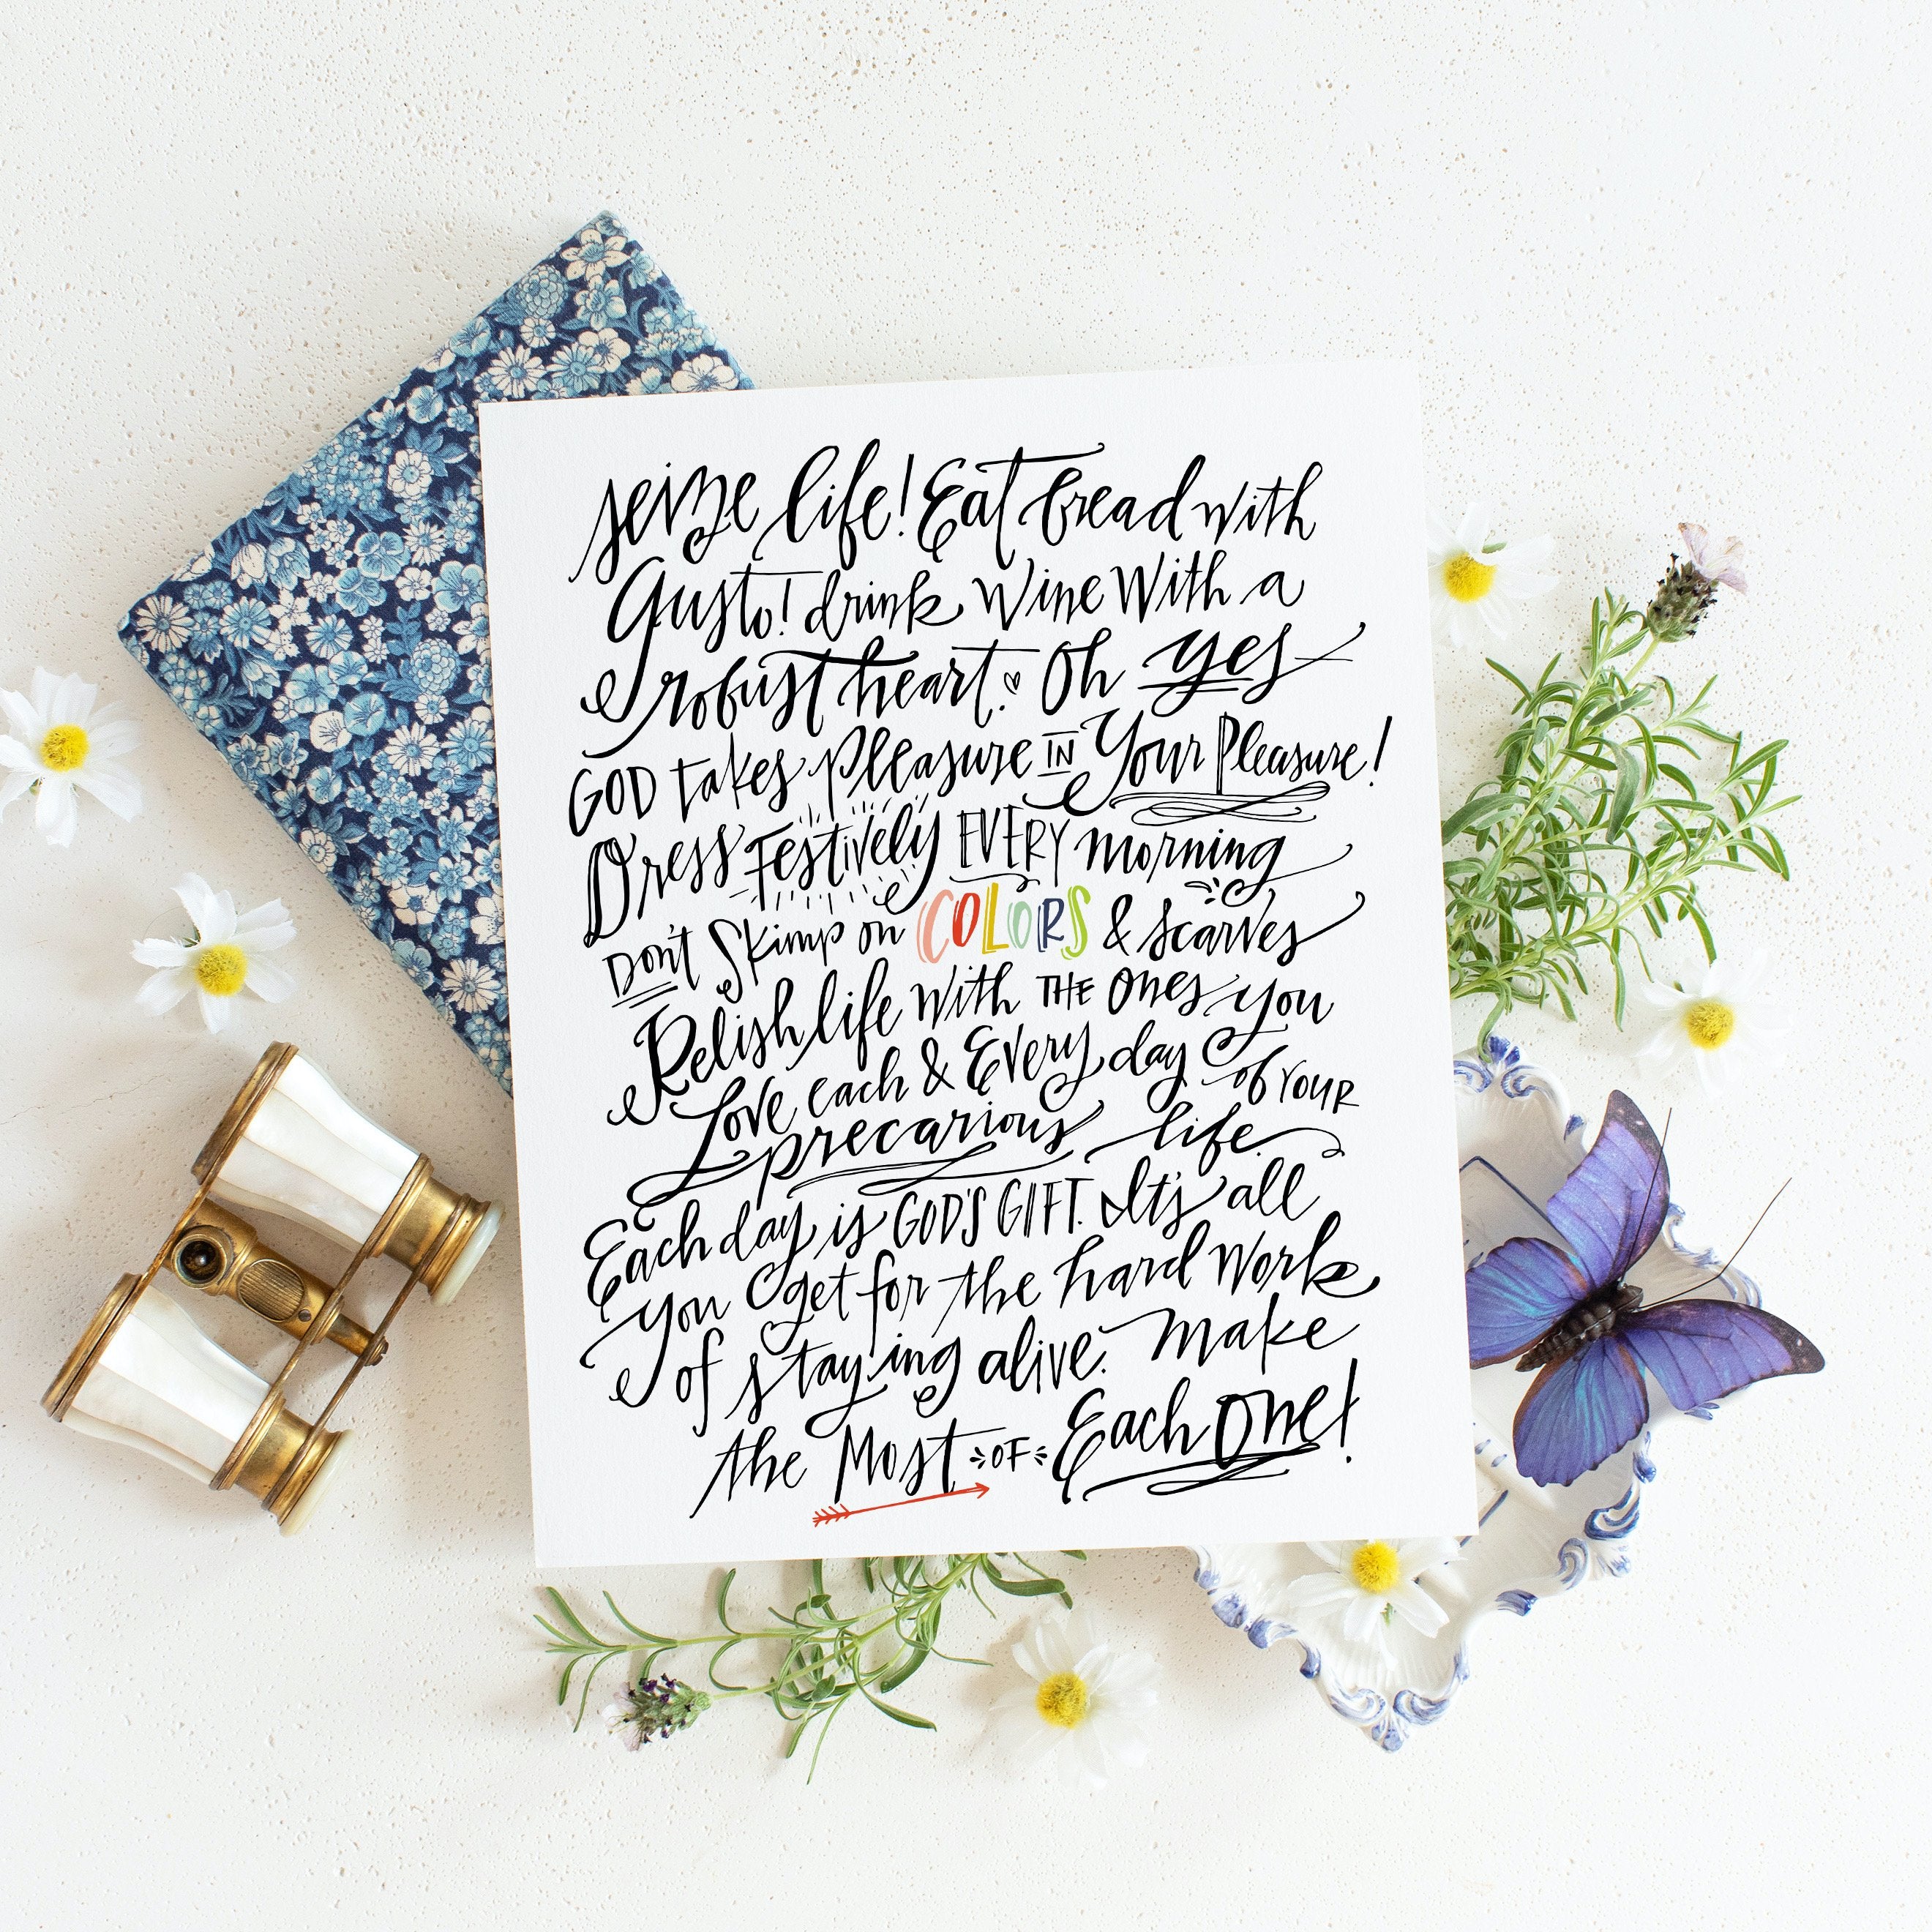 seize life! Eat bread with
Gusto! drink Wine With a
robust heart. Oh yes
GOD takes pleasure IN Your Pleasure!
Dress Festively EVERY morning
DON'T Skimp on COLORS & scarves
Relish life with THE Ones you
Love each & Every day of YOUR
precarious life.
Each day is GOD'S GIFT. It's all
you get for the hard Work
of staying alive. Make
the Most OF Each One!